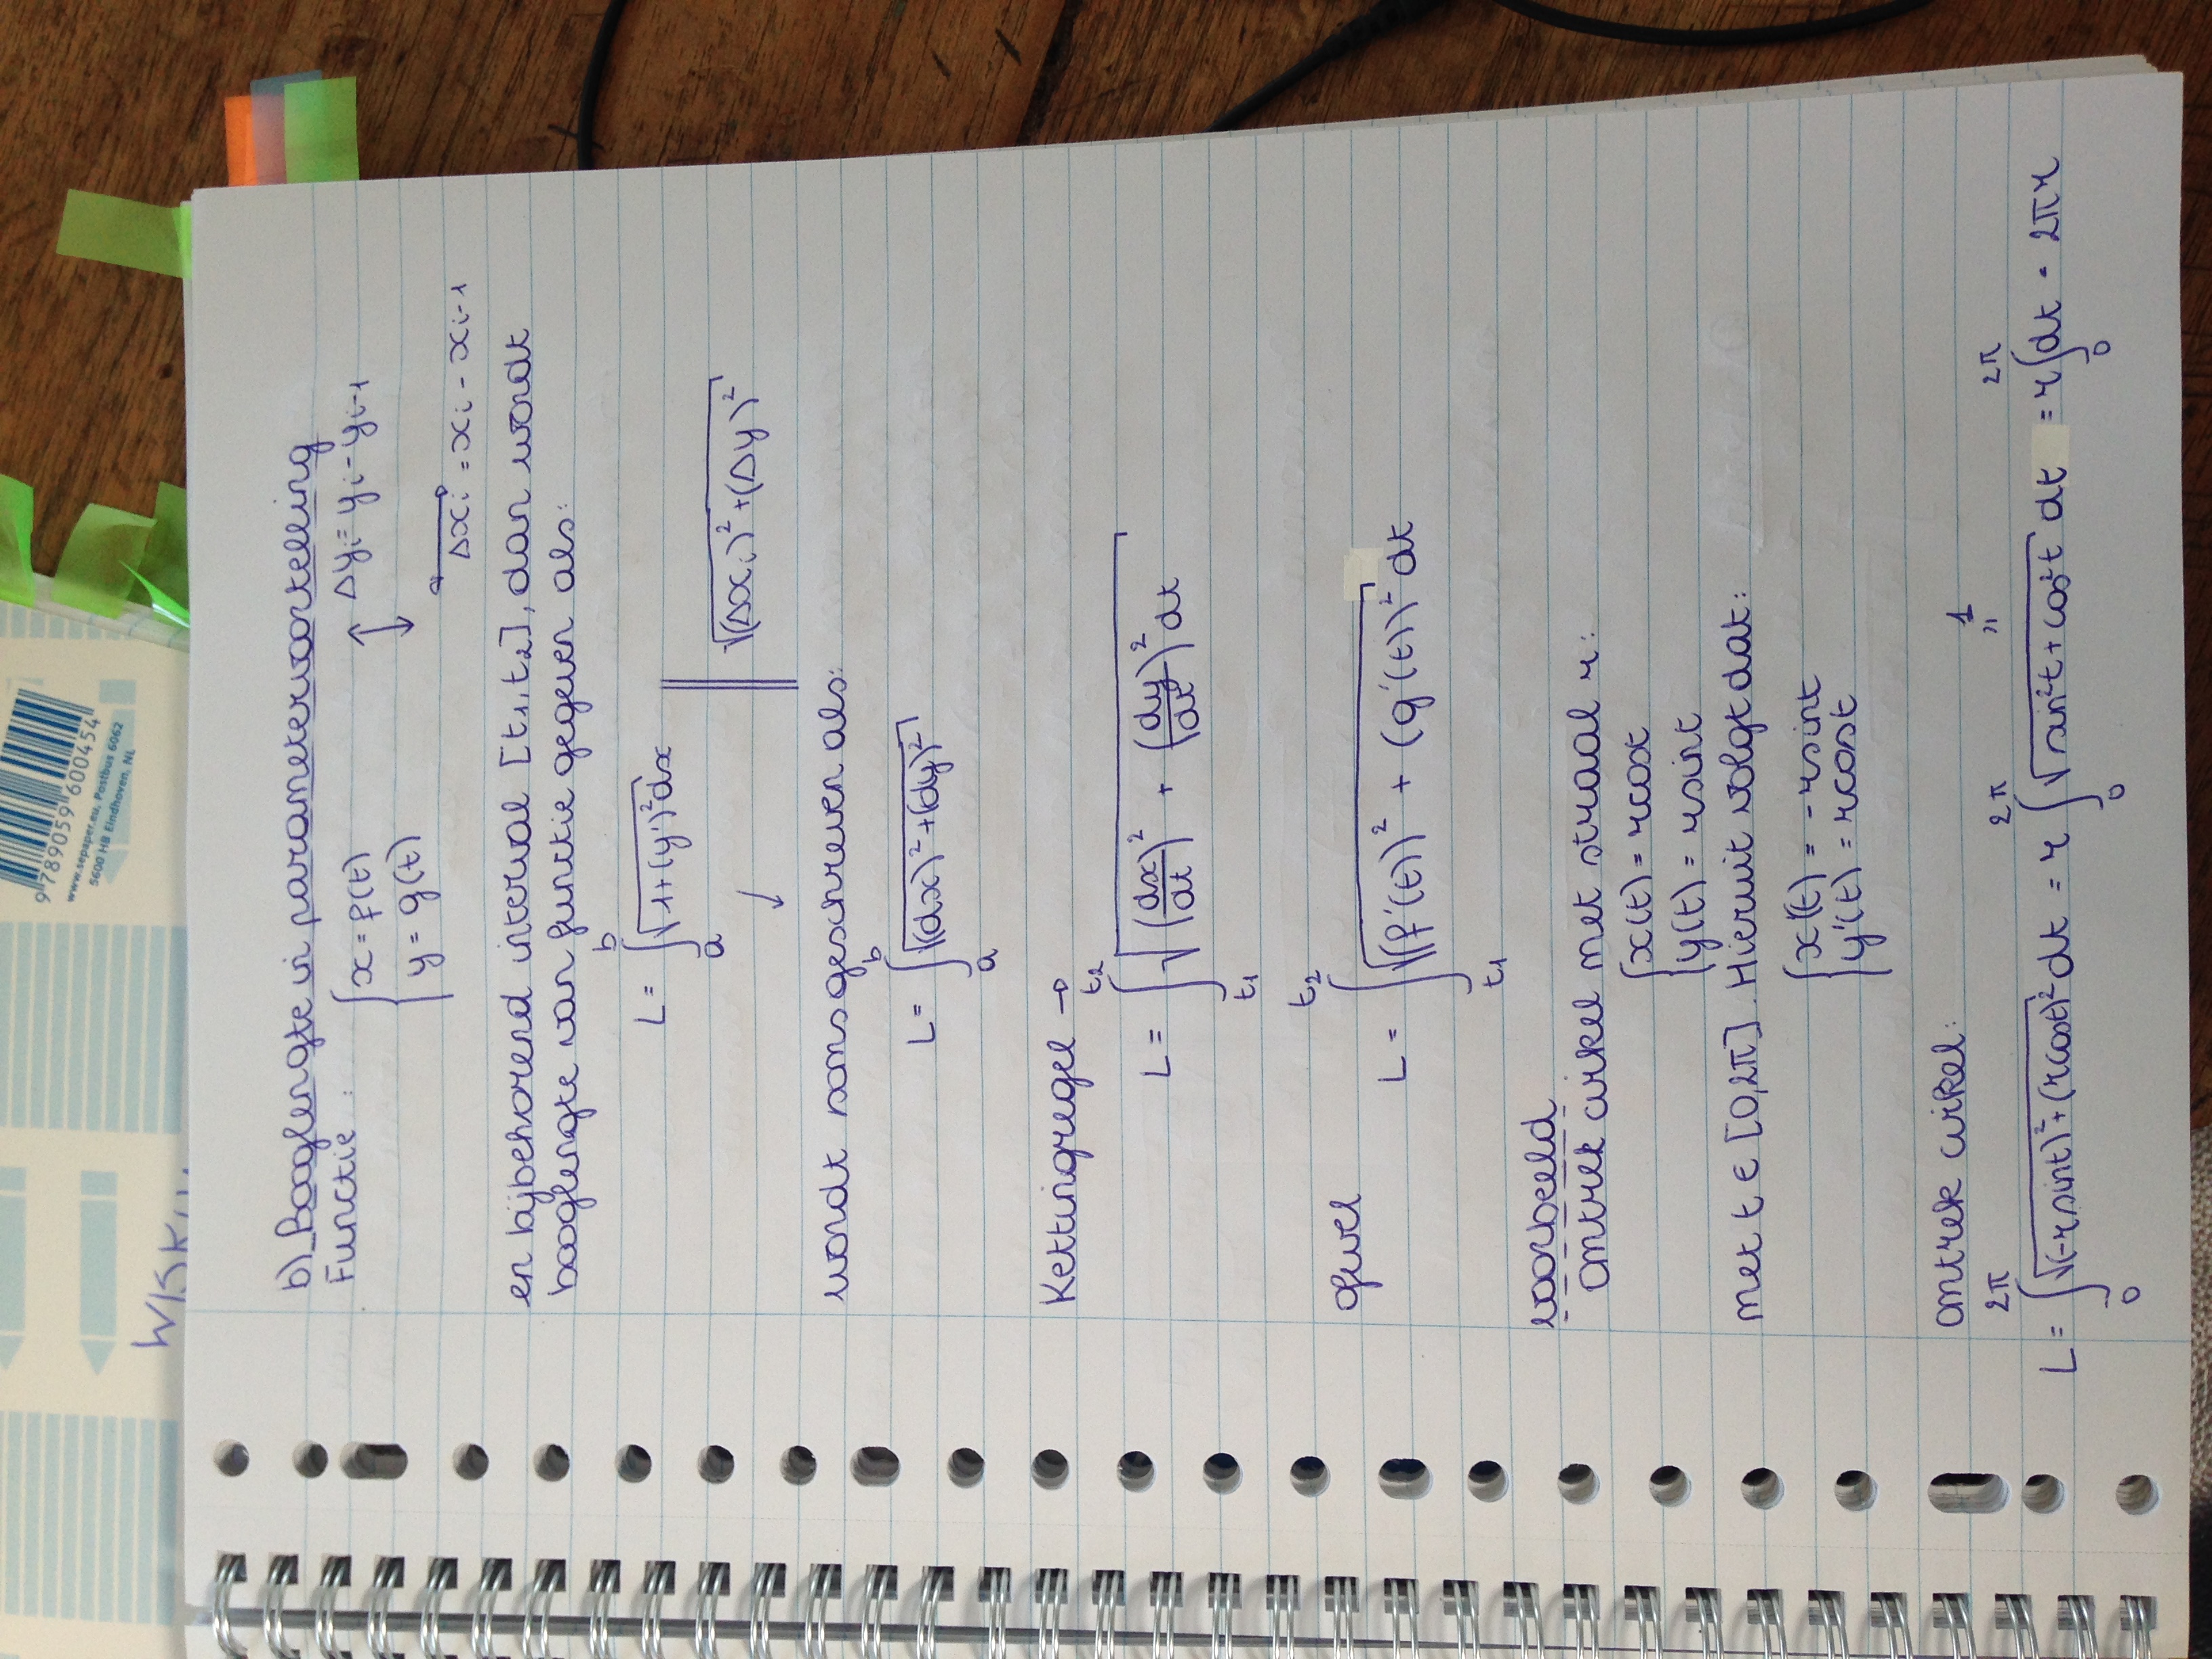 9 789059 600454
www.sepaper.eu, Postbus 6062
5600 HB Eindhoven, NL
b) Booglengte in parametervoorstelling
Functie : { x = f(t)
y = g(t)
↕ Δyᵢ = yᵢ - yᵢ₋₁
↔ Δxᵢ = xᵢ - xᵢ₋₁
en bijbehorend interval [t₁, t₂], dan wordt
booglengte van functie gegeven als:
L = ∫ₐᵇ √(1+(y')²) dx
√((Δxᵢ)² + (Δy)²)
↓
wordt soms geschreven als:
L = ∫ₐᵇ √((dx)² + (dy)²)
Kettingregel →
L = ∫ₜ₁ᵗ² √((dx/dt)² + (dy/dt)²) dt
ofwel
L = ∫ₜ₁ᵗ² √((f'(t))² + (g'(t))²) dt
voorbeeld
omtrek cirkel met straal r:
{ x(t) = r cos t
y(t) = r sin t
met t ∈ [0,2π]. Hieruit volgt dat:
{ x'(t) = -r sin t
y'(t) = r cos t
omtrek cirkel:
1
"
L = ∫₀^2π √((-r sin t)² + (r cos t)²) dt = r ∫₀^2π √(sin²t + cos²t) dt = r ∫₀^2π dt = 2πr